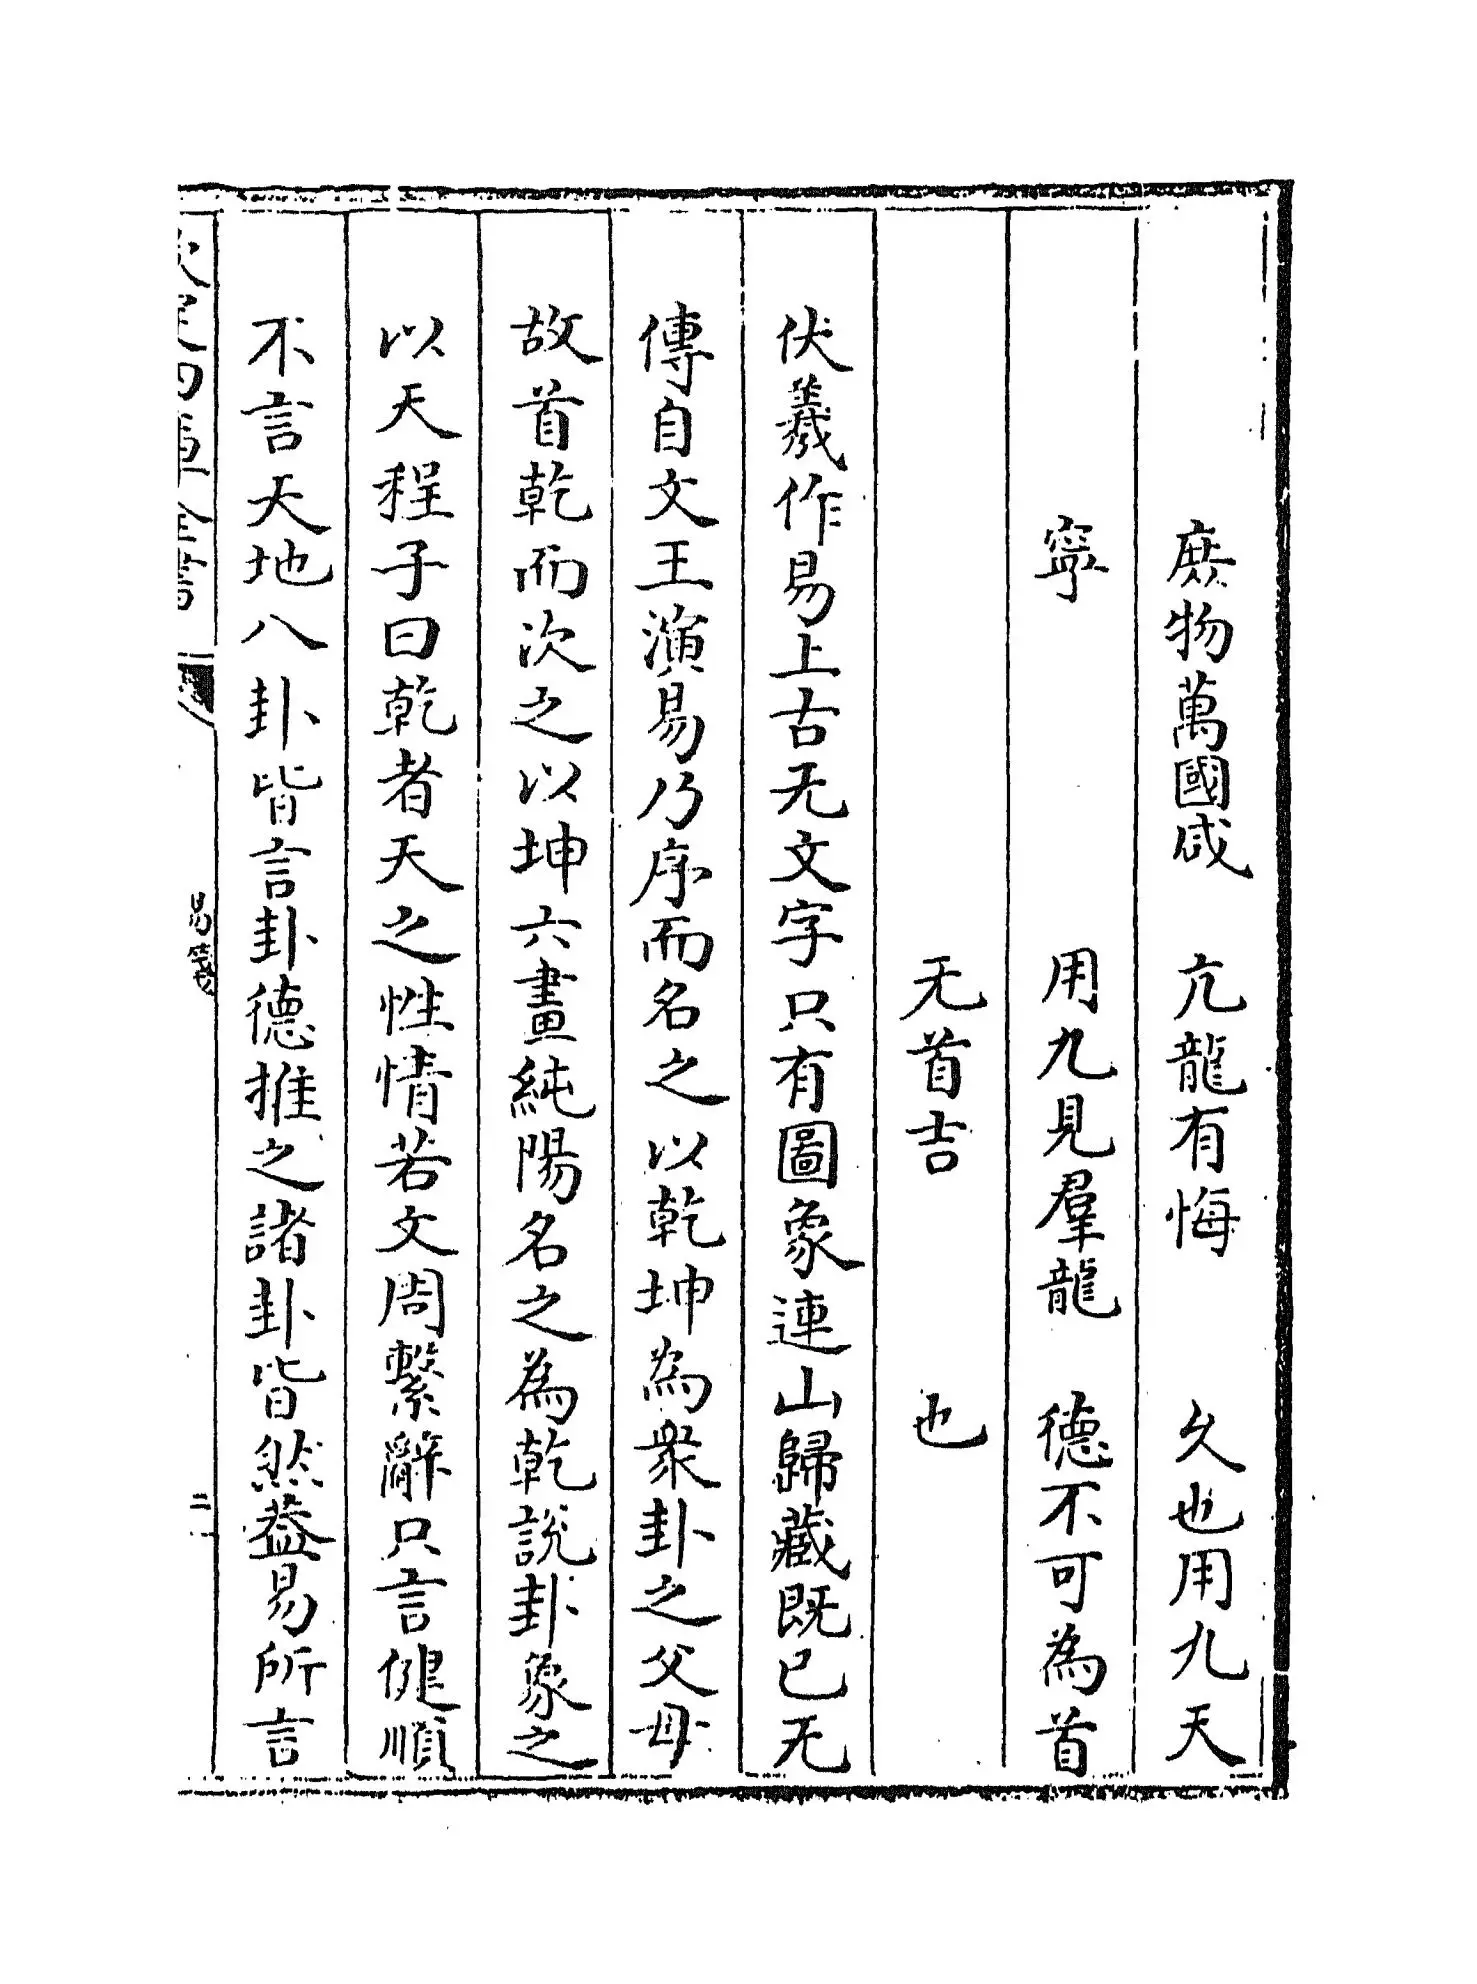 庶物萬國咸　亢龍有悔　久也用九天
寧　用九見羣龍　德不可為首
无首吉　也
伏羲作易上古无文字只有圖象連山歸藏既已无
傳自文王演易乃序而名之以乾坤為衆卦之父母
故首乾而次之以坤六畫純陽名之為乾說卦象之
以天程子曰乾者天之性情若文周繫辭只言健順
不言天地八卦皆言卦德推之諸卦皆然葢易所言
欽定四庫全書　易箋　二